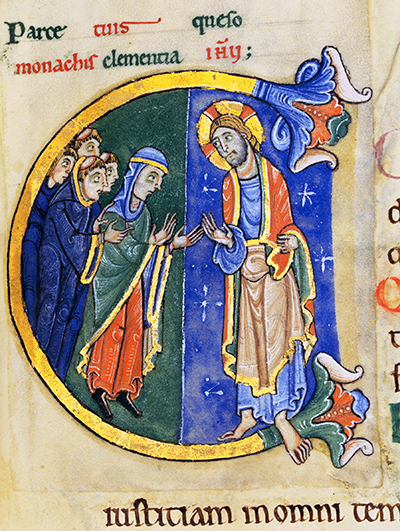 Parce tuis queso
monachis clementia iħu;
iustitiam in omni tem